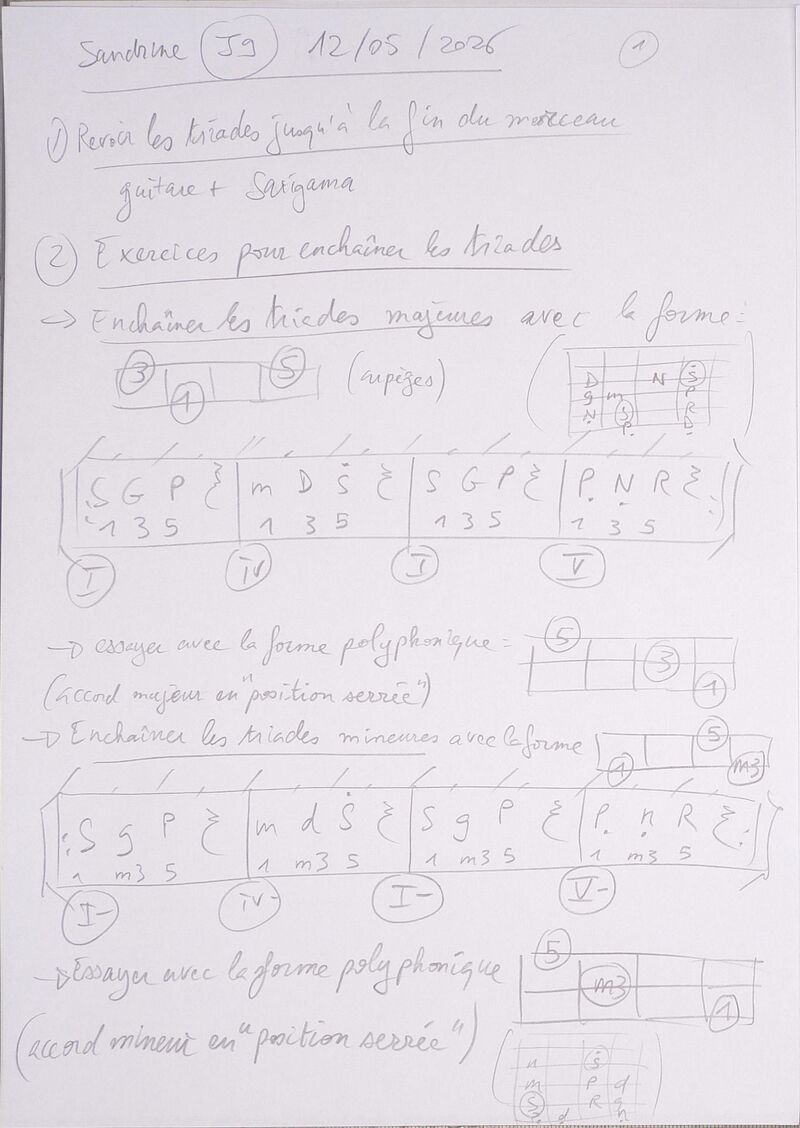 Sandrine 12/05/2026 1
1) Revoir les triades jusqu'à la fin du morceau
guitare + Sarigama
2 Exercices pour enchaîner les triades
→ Enchaîner les triades majeures avec la forme :
3 1 5 (arpèges)
D N Ṡ
g m P
Ṇ S R
P̣ Ḍ
S G P m D Ṡ S G P P̣ Ṇ R
1 3 5 1 3 5 1 3 5 1 3 5
I IV I V
→ essayer avec la forme polyphonique = 5 3 1
(accord majeur en "position serrée")
→ Enchaîner les triades mineures avec la forme 1 5 m3
S g P m d Ṡ S g P P̣ ṇ R
1 m3 5 1 m3 5 1 m3 5 1 m3 5
I- IV- I- V-
→ Essayer avec la forme polyphonique 5 m3 1
(accord mineur en "position serrée")
n Ṡ
m P d
S R g